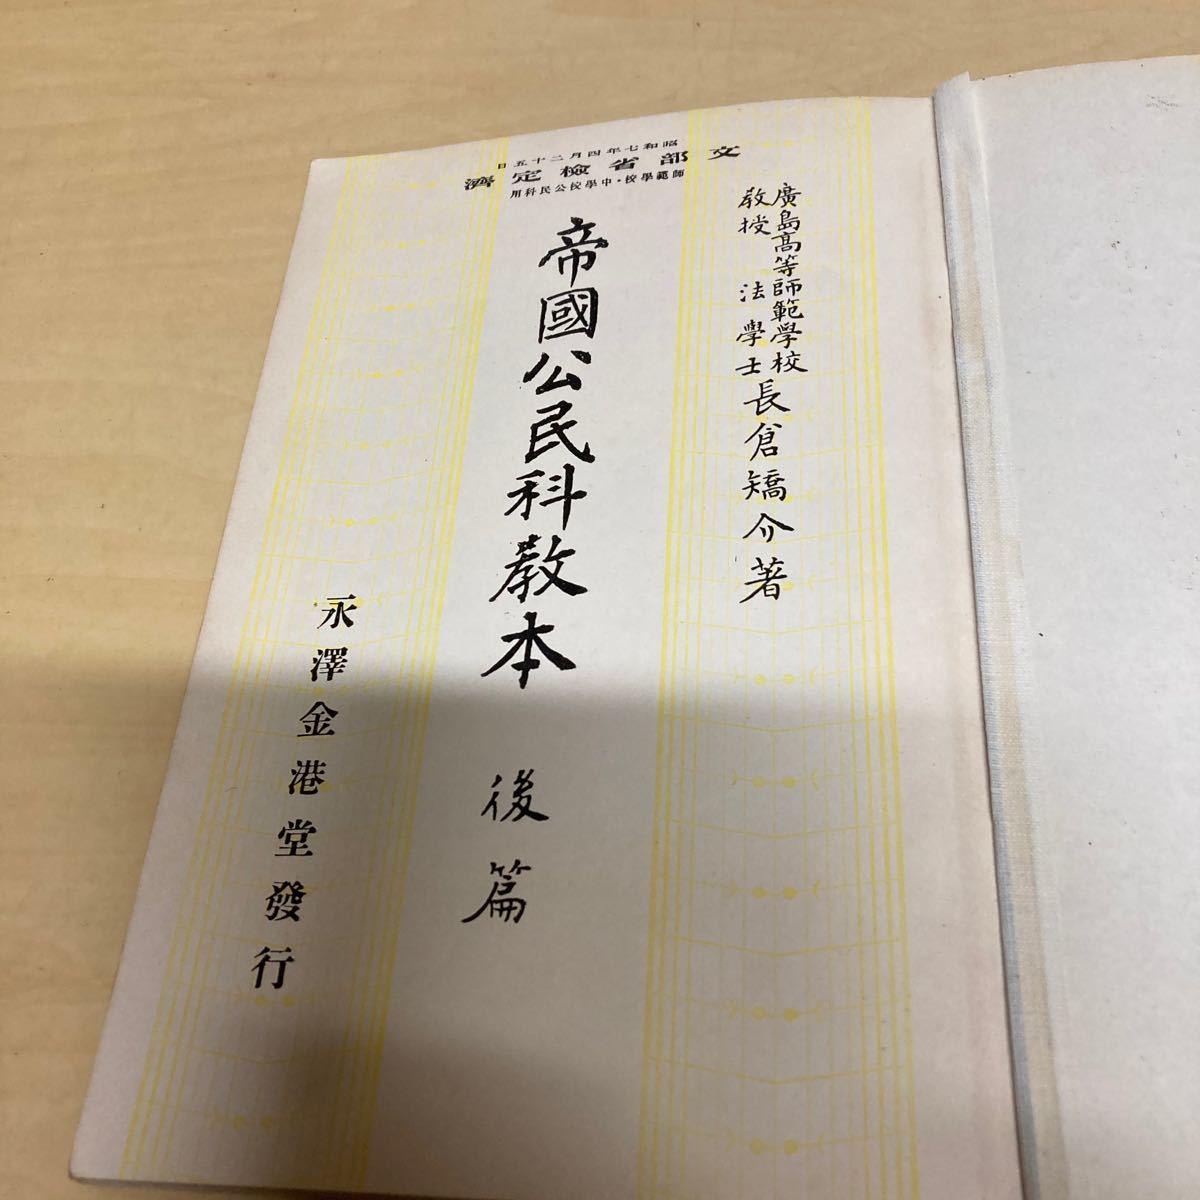 昭和七年四月二十五日
文部省檢定濟
師範學校・中學校公民科用
廣島高等師範學校
教授 法學士 長倉矯介著
帝國公民科教本 後篇
永澤金港堂發行